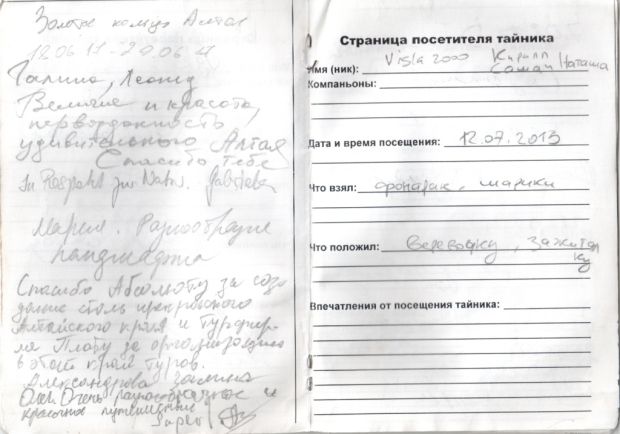 Золотое кольцо Алтая
12.06.11-20.06.11
Галина, Леонид
Величие и красота,
первозданность
удивительного Алтая
Спасибо тебе
Мария. Разнообразие
ландшафта
Спасибо Абсолюту за созда
дание столь прекрасного
Алтайского края и Турфир-
ме Плоту за организацию
в этот край туров.
Александрова Залина
Очень разнообразное и
красочное путешествие
Super
Страница посетителя тайника
Имя (ник): Visla 2000 Кирилл
Саша Наташа
Компаньоны:
Дата и время посещения: 12.07.2013
Что взял: фонарик, шарики
Что положил: Веревочку, зажигал
ку
Впечатления от посещения тайника: